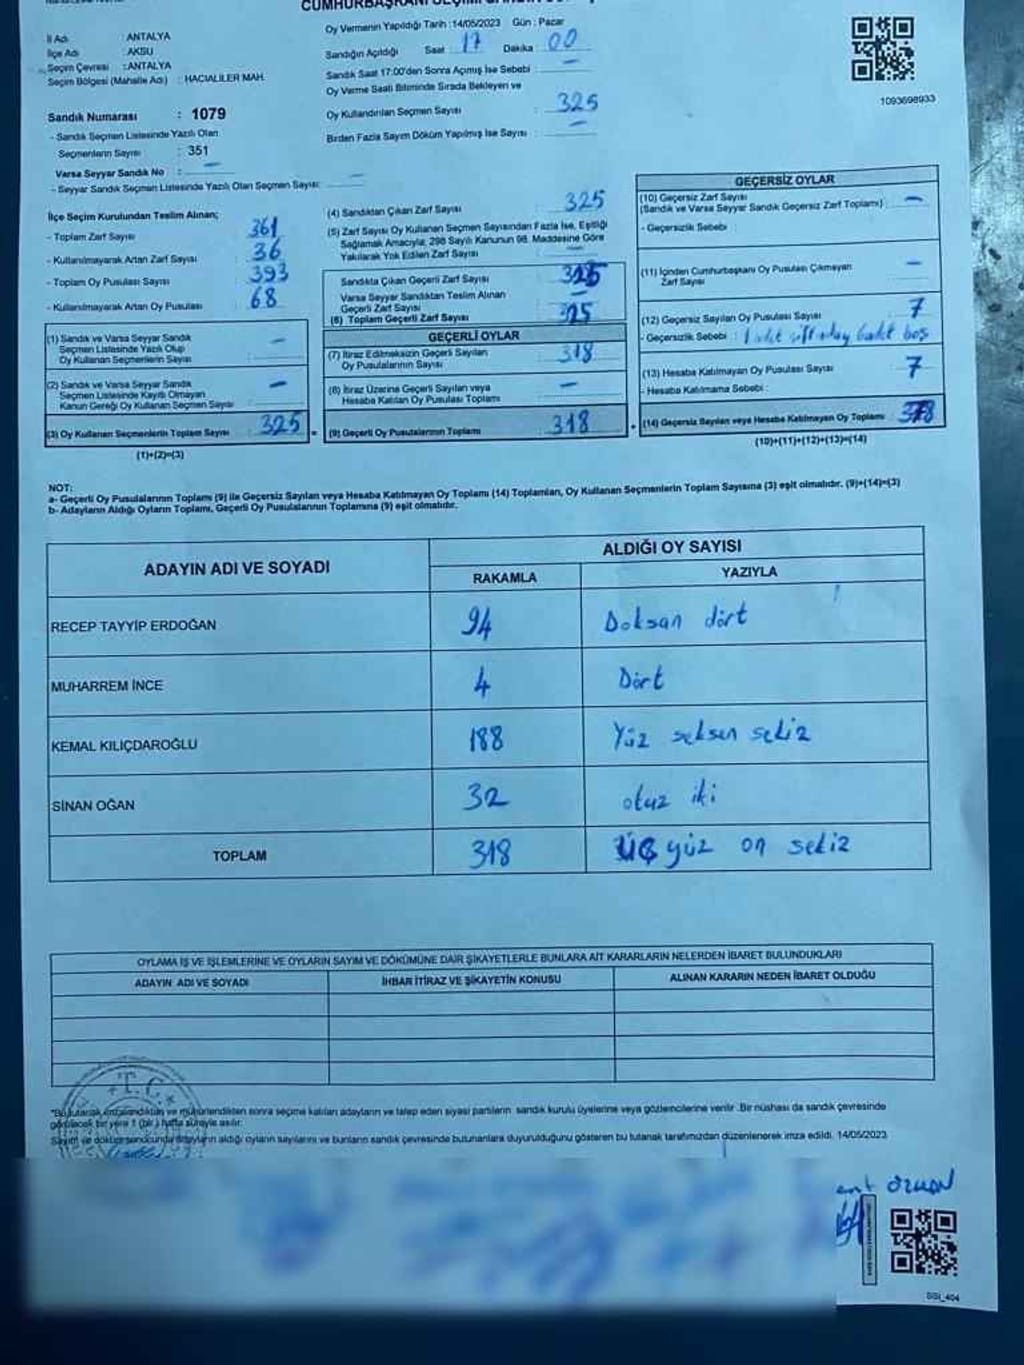 İl Adı : ANTALYA
İlçe Adı : AKSU
Seçim Çevresi : ANTALYA
Seçim Bölgesi (Mahalle Adı) : HACIALİLER MAH.
Sandık Numarası : 1079
- Sandık Seçmen Listesinde Yazılı Olan
Seçmenlerin Sayısı : 351
Varsa Seyyar Sandık No : -
- Seyyar Sandık Seçmen Listesinde Yazılı Olan Seçmen Sayısı: -
Oy Vermenin Yapıldığı Tarih : 14/05/2023 Gün : Pazar
Sandığın Açıldığı Saat : 17 Dakika : 00
Sandık Saat 17:00'den Sonra Açmış İse Sebebi : -
Oy Verme Saati Bitiminde Sırada Bekleyen ve
Oy Kullandırılan Seçmen Sayısı : 325
Birden Fazla Sayım Döküm Yapılmış İse Sayısı : -
1093698933
İlçe Seçim Kurulundan Teslim Alınan;
- Toplam Zarf Sayısı : 361
- Kullanılmayarak Artan Zarf Sayısı : 36
- Toplam Oy Pusulası Sayısı : 393
- Kullanılmayarak Artan Oy Pusulası : 68
(1) Sandık ve Varsa Seyyar Sandık
Seçmen Listesinde Yazılı Olup
Oy Kullanan Seçmenlerin Sayısı : -
(2) Sandık ve Varsa Seyyar Sandık
Seçmen Listesinde Kayıtlı Olmayan
Kanun Gereği Oy Kullanan Seçmen Sayısı : -
(3) Oy Kullanan Seçmenlerin Toplam Sayısı : 325
(1)+(2)=(3)
(4) Sandıktan Çıkan Zarf Sayısı : 325
(5) Zarf Sayısı Oy Kullanan Seçmen Sayısından Fazla İse, Eşitliği
Sağlamak Amacıyla, 298 Sayılı Kanunun 98. Maddesine Göre
Yakılarak Yok Edilen Zarf Sayısı : -
Sandıkta Çıkan Geçerli Zarf Sayısı : 325
Varsa Seyyar Sandıktan Teslim Alınan
Geçerli Zarf Sayısı
(6) Toplam Geçerli Zarf Sayısı : 325
GEÇERLİ OYLAR
(7) İtiraz Edilmeksizin Geçerli Sayılan
Oy Pusulalarının Sayısı : 318
(8) İtiraz Üzerine Geçerli Sayılan veya
Hesaba Katılan Oy Pusulası Toplamı : -
= (9) Geçerli Oy Pusulalarının Toplamı : 318
GEÇERSİZ OYLAR
(10) Geçersiz Zarf Sayısı
(Sandık ve Varsa Seyyar Sandık Geçersiz Zarf Toplamı) : -
- Geçersizlik Sebebi :
(11) İçinden Cumhurbaşkanı Oy Pusulası Çıkmayan
Zarf Sayısı : -
(12) Geçersiz Sayılan Oy Pusulası Sayısı : 7
- Geçersizlik Sebebi : 1 adet boş
(13) Hesaba Katılmayan Oy Pusulası Sayısı : 7
- Hesaba Katılmama Sebebi :
+ (14) Geçersiz Sayılan veya Hesaba Katılmayan Oy Toplamı :
(10)+(11)+(12)+(13)=(14)
NOT:
a- Geçerli Oy Pusulalarının Toplamı (9) ile Geçersiz Sayılan veya Hesaba Katılmayan Oy Toplamı (14) Toplamları, Oy Kullanan Seçmenlerin Toplam Sayısına (3) eşit olmalıdır. (9)+(14)=(3)
b- Adayların Aldığı Oyların Toplamı, Geçerli Oy Pusulalarının Toplamına (9) eşit olmalıdır.
ADAYIN ADI VE SOYADI ALDIĞI OY SAYISI
RAKAMLA YAZIYLA
RECEP TAYYİP ERDOĞAN 94 Doksan dört
MUHARREM İNCE 4 Dört
KEMAL KILIÇDAROĞLU 188 Yüz seksen sekiz
SİNAN OĞAN 32 otuz iki
TOPLAM 318 üç yüz on sekiz
OYLAMA İŞ VE İŞLEMLERİNE VE OYLARIN SAYIM VE DÖKÜMÜNE DAİR ŞİKAYETLERLE BUNLARA AİT KARARLARIN NELERDEN İBARET BULUNDUKLARI
ADAYIN ADI VE SOYADI İHBAR İTİRAZ VE ŞİKAYETİN KONUSU ALINAN KARARIN NEDEN İBARET OLDUĞU
T.C.
*Bu tutanak imzalandıktan ve mühürlendikten sonra seçime katılan adayların ve talep eden siyasi partilerin sandık kurulu üyelerine veya gözlemcilerine verilir. Bir nüshası da sandık çevresinde
görülecek bir yere 1 (bir) hafta süreyle asılır.
Sayım ve döküm sonucunda adayların aldığı oyların sayılarını ve bunların sandık çevresinde bulunanlara duyurulduğunu gösteren bu tutanak tarafımızdan düzenlenerek imza edildi. 14/05/2023
ÖZKAN
SSİ_404